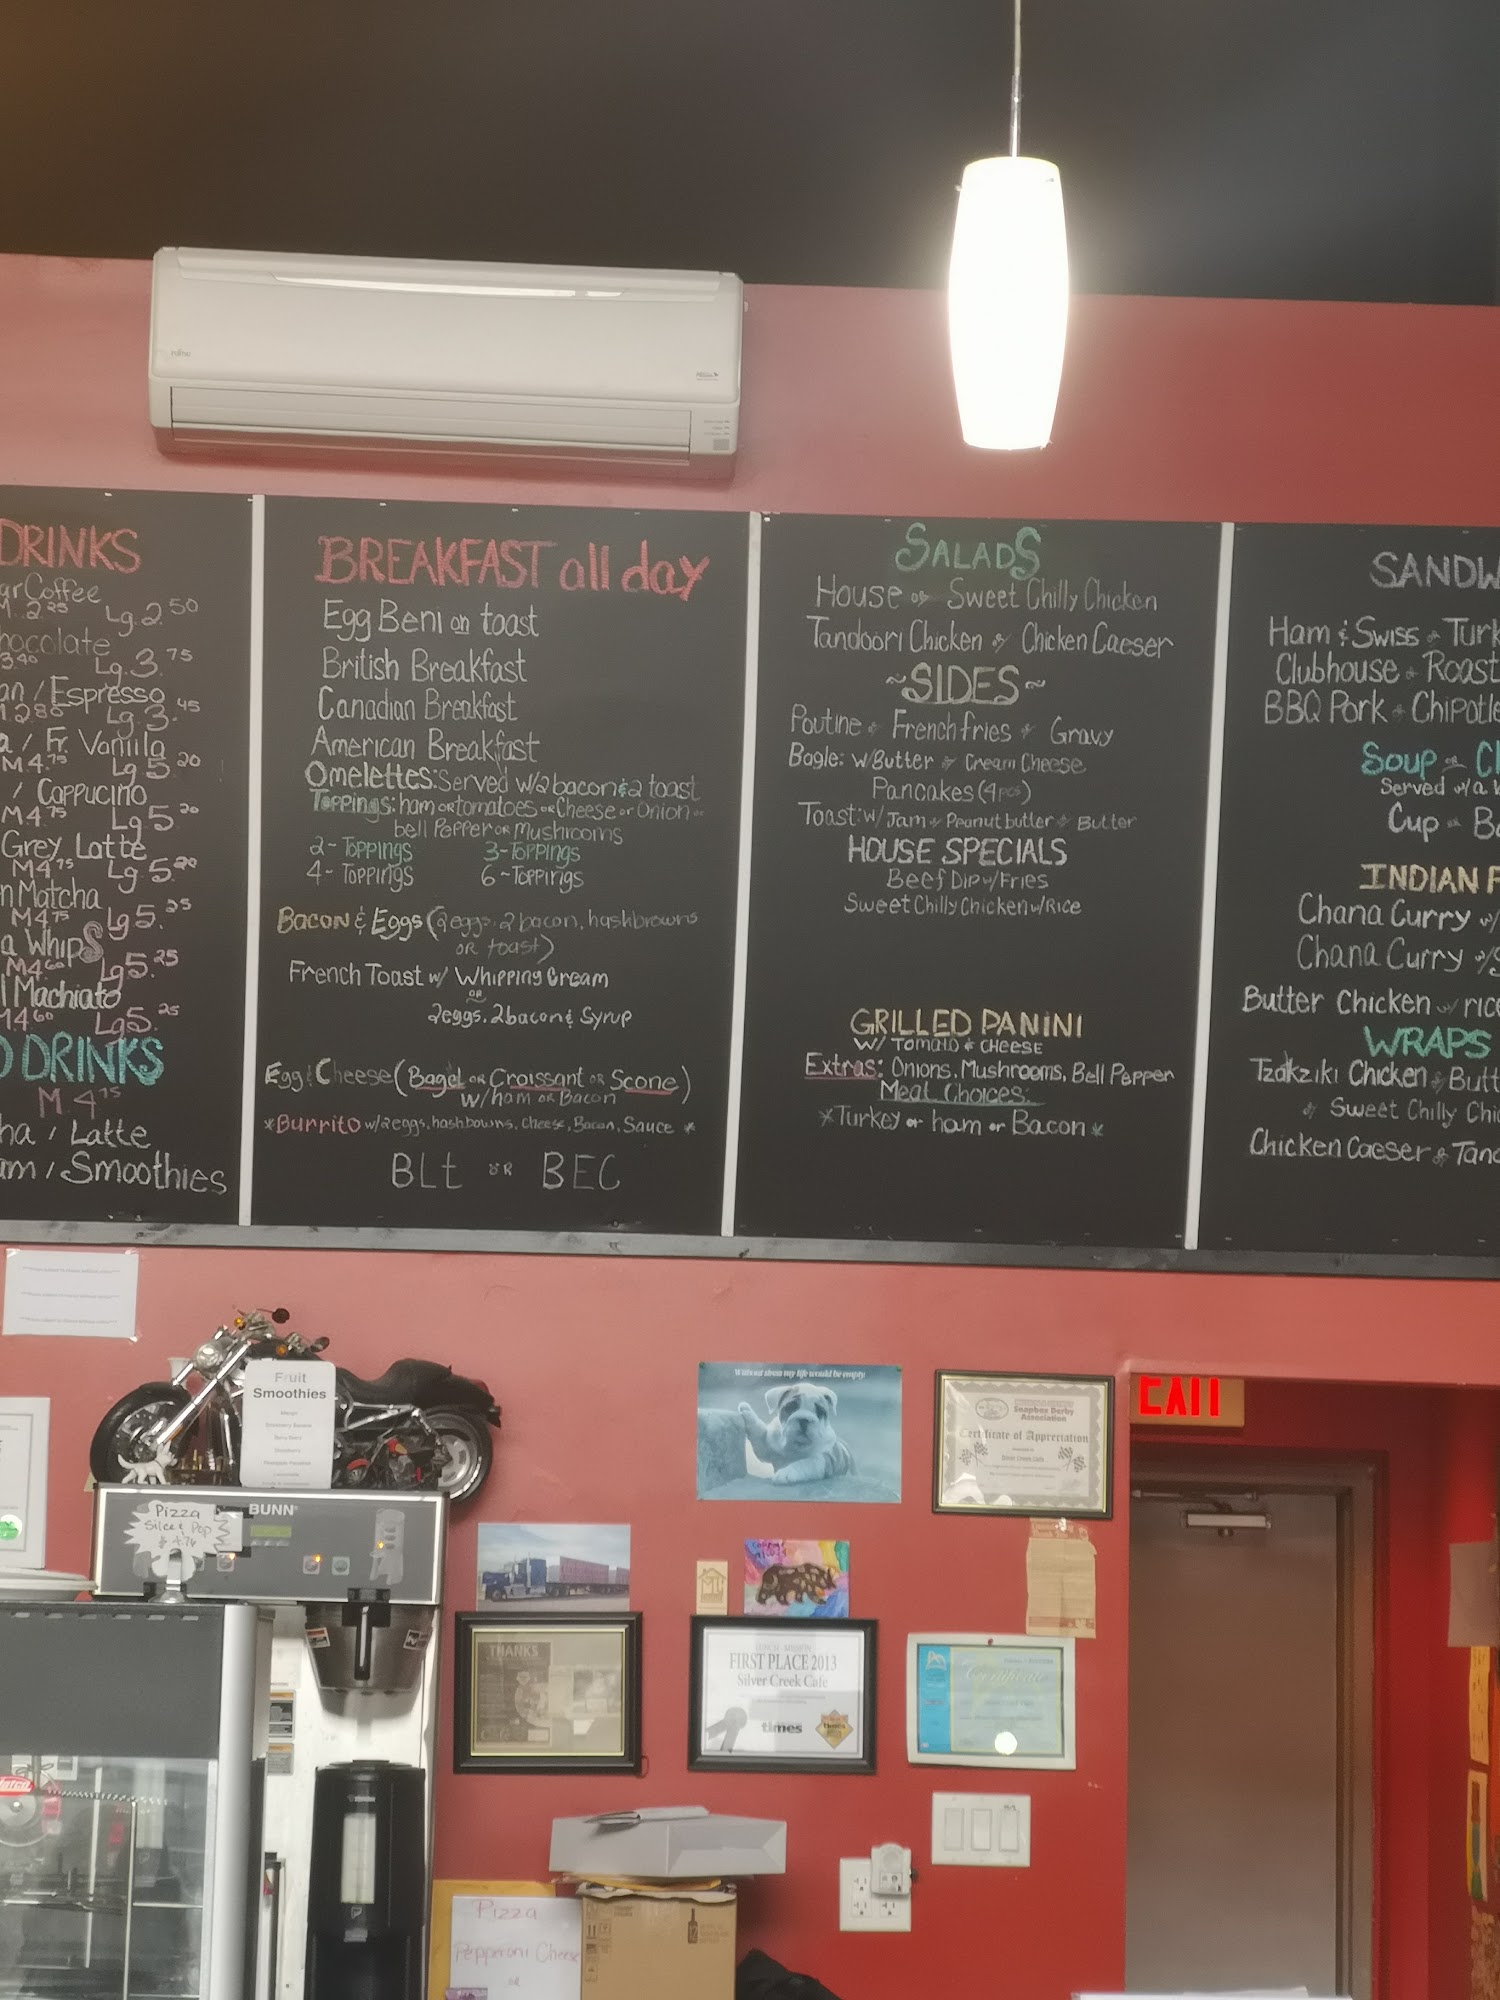 DRINKS
Coffee
2.25 Lg. 2.50
hocolate
3.40 Lg. 3.75
an / Espresso
2.80 Lg. 3.45
a / Fr. Vanilla
M 4.75 Lg 5.20
/ Cappucino
M 4.75 Lg 5.20
Grey Latte
M 4.75 Lg 5.20
n Matcha
M 4.75 Lg 5.25
a Whips
M 4.60 Lg 5.25
l Machiato
M 4.60 Lg 5.25
DRINKS
M. 4.75
ha / Latte
am / Smoothies
BREAKFAST all day
Egg Beni on toast
British Breakfast
Canadian Breakfast
American Breakfast
Omelettes: Served w/2 bacon & 2 toast
Toppings: ham or tomatoes or Cheese or Onion or
bell Pepper or Mushrooms
2-Toppings 3-Toppings
4-Toppings 6-Toppings
Bacon & Eggs (2 eggs, 2 bacon, hashbrowns
or toast)
French Toast w/ Whipping Cream
or
2 eggs, 2 bacon & Syrup
Egg & Cheese (Bagel or Croissant or Scone)
w/ham or Bacon
*Burrito w/2eggs, hashbowns, cheese, Bacon, Sauce *
BLt or BEC
SALADS
House or Sweet Chilly Chicken
Tandoori Chicken or Chicken Caeser
~SIDES~
Poutine or French fries or Gravy
Bagle: w/Butter or Cream Cheese
Pancakes (4pcs)
Toast: w/ Jam or Peanut butter or Butter
HOUSE SPECIALS
Beef Dip w/Fries
Sweet Chilly Chicken w/Rice
GRILLED PANINI
w/ Tomato & Cheese
Extras: Onions, Mushrooms, Bell Pepper
Meat Choices.
*Turkey or ham or Bacon*
SANDW
Ham & Swiss or Turk
Clubhouse or Roast
BBQ Pork or Chipotle
Soup or Cl
Served w/a
Cup or Bo
INDIAN F
Chana Curry w/
Chana Curry w/
Butter Chicken w/ rice
WRAPS
Tzakziki Chicken or Butt
or Sweet Chilly Chi
Chicken Caeser or Tand
Fruit
Smoothies
Pizza
Slice & Pop
$ 4.76
BUNN
Without them my life would be empty.
Soapbox Derby
Association
Certificate of Appreciation
EXIT
THANKS
FIRST PLACE 2013
Silver Creek Cafe
times
Certificate
Pizza
Pepperoni Cheese
or